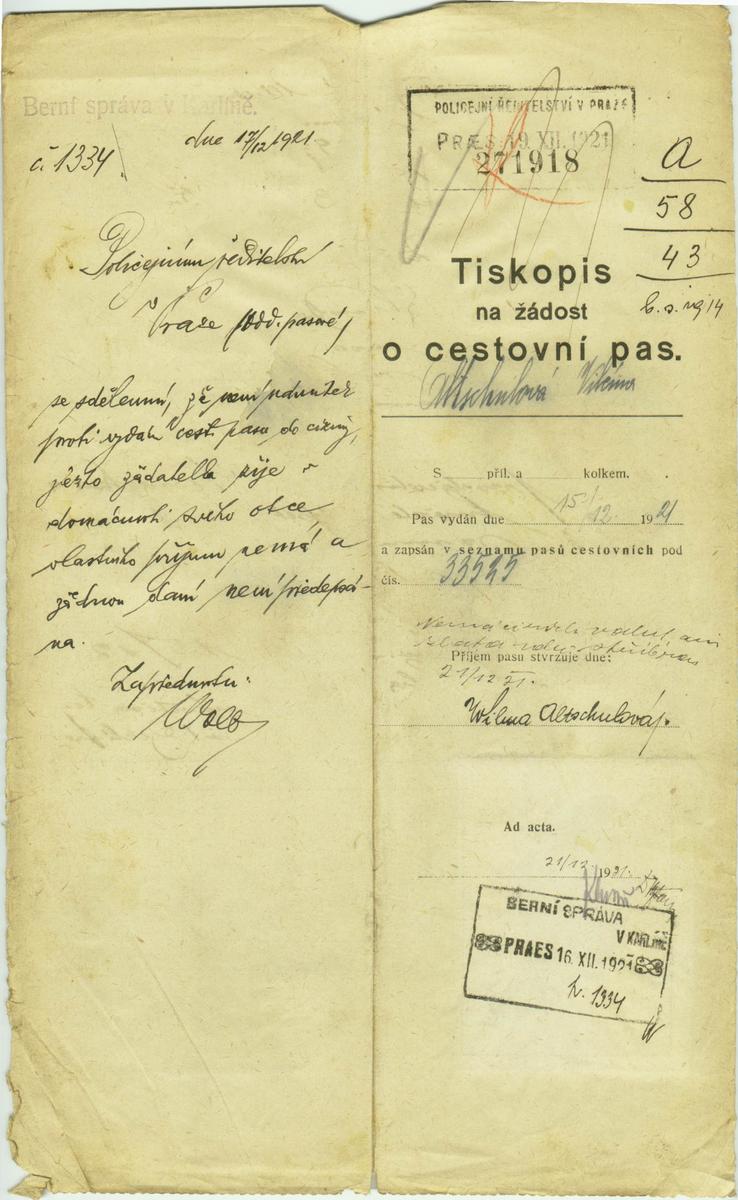 Berní správa v Karlíně.
č. 1334
dne 17/12 1921.
Policejnímu ředitelství
v Praze (odd. pasové)
se sdělením, že není námitek
proti vydání cest. pasu do ciziny,
ježto žadatelka žije v
domácnosti svého otce
vlastního příjmu nemá a
žádnou daní není předepsá-
na.
Za přednostu:
POLICEJNÍ ŘEDITELSTVÍ V PRAZE
PRAES 19. XII. 1921
271918
A
58
43
Tiskopis
na žádost
o cestovní pas.
Altschulová Vilma
S příl. a kolkem.
Pas vydán dne 15/12 1921
a zapsán v seznamu pasů cestovních pod
čís. 33525
Nemá cizích valut, ani
zlata
Příjem pasu stvrzuje dne:
21/12 21.
Wilma Altschulová.
Ad acta.
21/12 1921.
BERNÍ SPRÁVA
V KARLÍNĚ
PRAES 16. XII. 1921
č. 1334